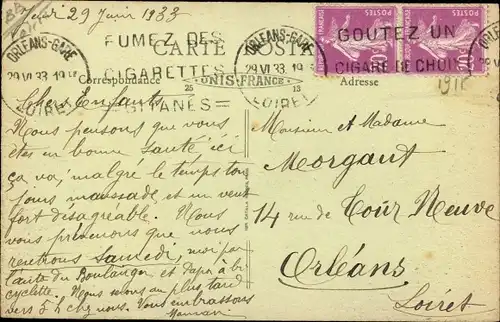 Jeudi 29 Juin 1933
ORLÉANS-GARE
29 VI 33
LOIRET
FUMEZ DES
CIGARETTES
GITANES
CARTE POSTALE
UNIS-FRANCE
25
13
Correspondance
Adresse
ORLÉANS-GARE
29 VI 33
LOIRET
POSTES
POSTES
GOUTEZ UN
CIGARE DE CHOIX
Chers Enfants
Nous pensons que vous
êtes en bonne santé ici
ça va, malgré le temps tou
jours maussade et un vent
fort désagréable. Nous
vous prévenons que nous
rentrons Samedi, moi par
l'auto du Boulanger et Papa à bi
cyclette. Nous serons au plus tard
vers 5 h chez nous. Vous embrassons
Maman
Monsieur et Madame
Morgant
14 rue de Tour Neuve
Orléans
Loiret